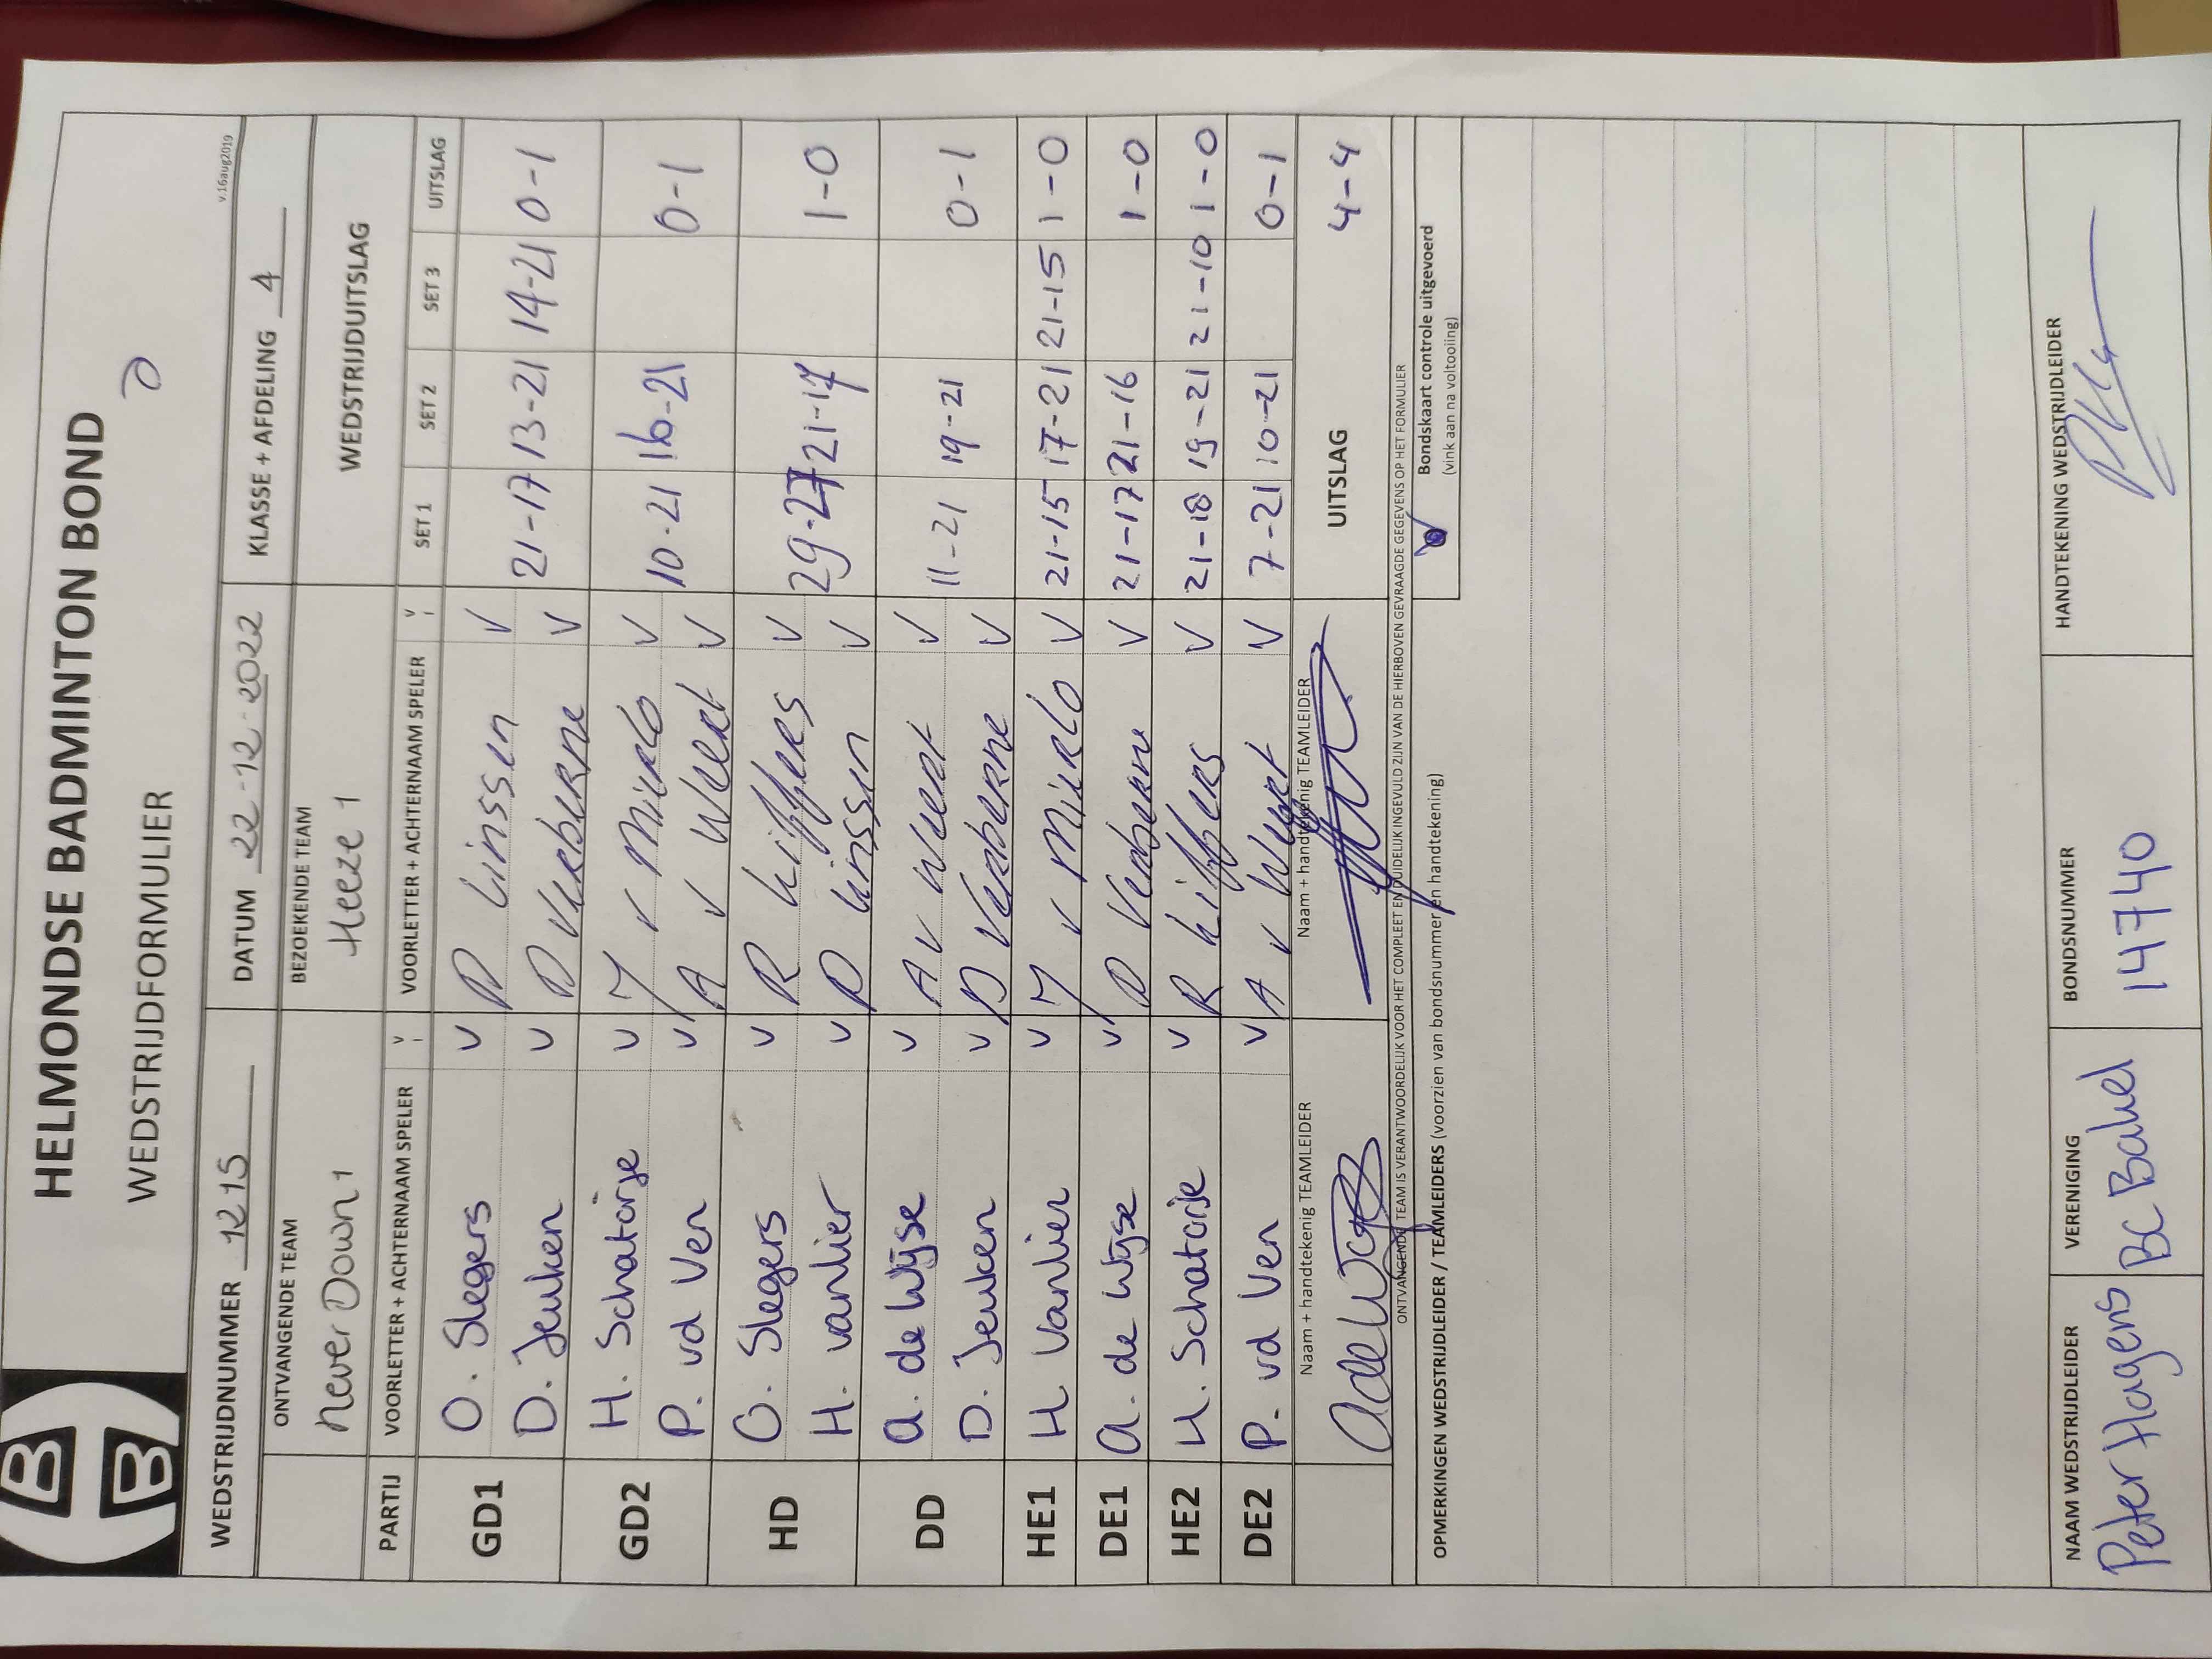 HELMONDSE BADMINTON BOND
WEDSTRIJDFORMULIER
v.16aug2019
WEDSTRIJDNUMMER 1215 DATUM 22-12-2022 KLASSE + AFDELING 4
ONTVANGENDE TEAM BEZOEKENDE TEAM WEDSTRIJDUITSLAG
Never Down 1 Heeze 1
PARTIJ VOORLETTER + ACHTERNAAM SPELER V VOORLETTER + ACHTERNAAM SPELER V SET 1 SET 2 SET 3 UITSLAG
GD1 O. Slegers V D Linssen V
D. Jeuken V D Verberne V 21-17 13-21 14-21 0-1
GD2 H. Schatorje V J v Mierlo V
P. vd Ven V A v Weert V 10-21 16-21 0-1
HD O. Slegers V R Liffers V
H. vanlier V D Linssen V 29-27 21-17 1-0
DD a. de Wijse V A v Weert V
D. Jeuken V D Verberne V 11-21 19-21 0-1
HE1 H. Vanlier V J v Mierlo V 21-15 17-21 21-15 1-0
DE1 a. de Wijse V D Verberne V 21-17 21-16 1-0
HE2 H. Schatorje V R Liffers V 21-18 19-21 21-10 1-0
DE2 P. vd Ven V A v Weert V 7-21 10-21 0-1
Naam + handtekenig TEAMLEIDER Naam + handtekenig TEAMLEIDER UITSLAG 4-4
ONTVANGENDE TEAM IS VERANTWOORDELIJK VOOR HET COMPLEET EN DUIDELIJK INGEVULD ZIJN VAN DE HIERBOVEN GEVRAAGDE GEGEVENS OP HET FORMULIER
OPMERKINGEN WEDSTRIJDLEIDER / TEAMLEIDERS (voorzien van bondsnummer en handtekening)
Bondskaart controle uitgevoerd
(vink aan na voltooiing)
NAAM WEDSTRIJDLEIDER VERENIGING BONDSNUMMER HANDTEKENING WEDSTRIJDLEIDER
Peter Hagens BC Bakel 14740